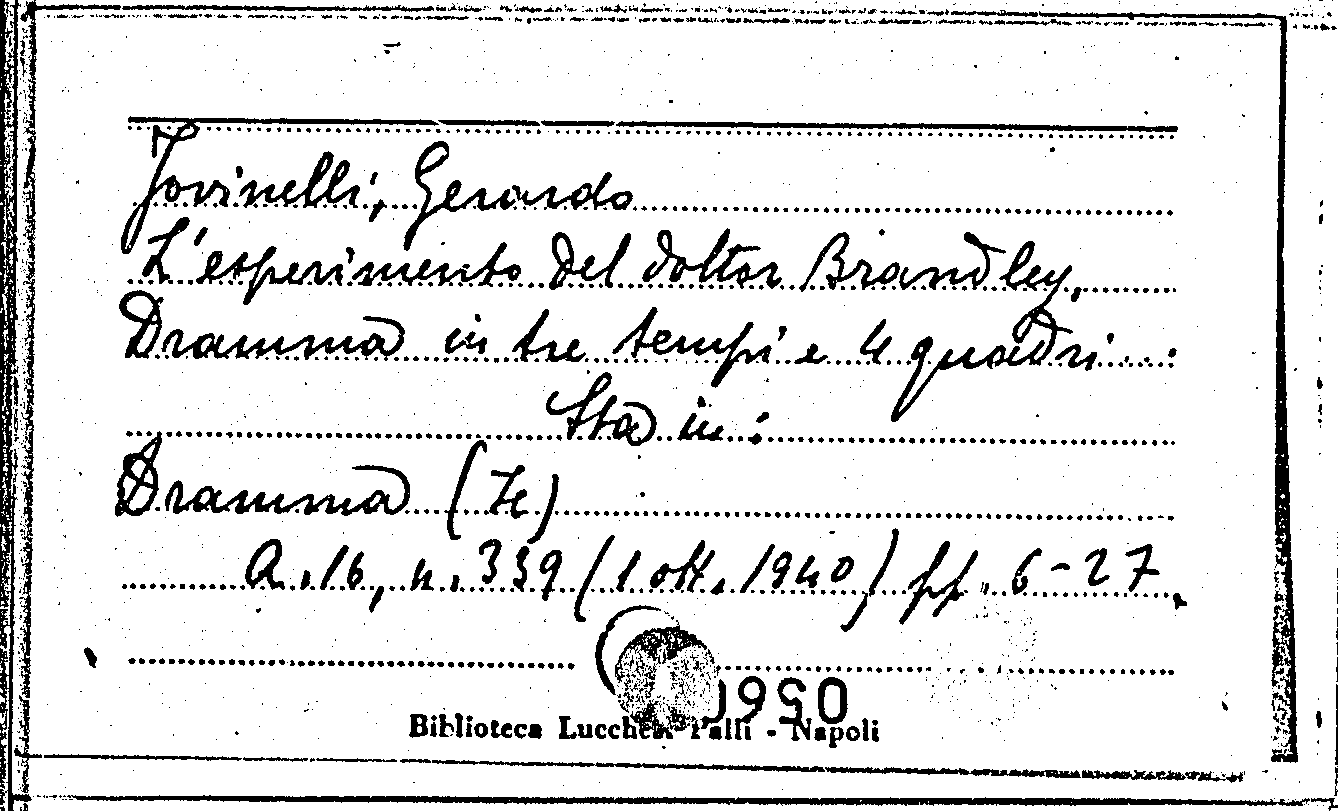 Jovinelli, Gerardo
L'esperimento del dottor Brandley,
Dramma in tre tempi e 4 quadri...
Sta in:
Dramma (Il)
A. 16, n. 339 (1 ott. 1940) pp. 6-27.
Biblioteca Lucchesi Palli - Napoli